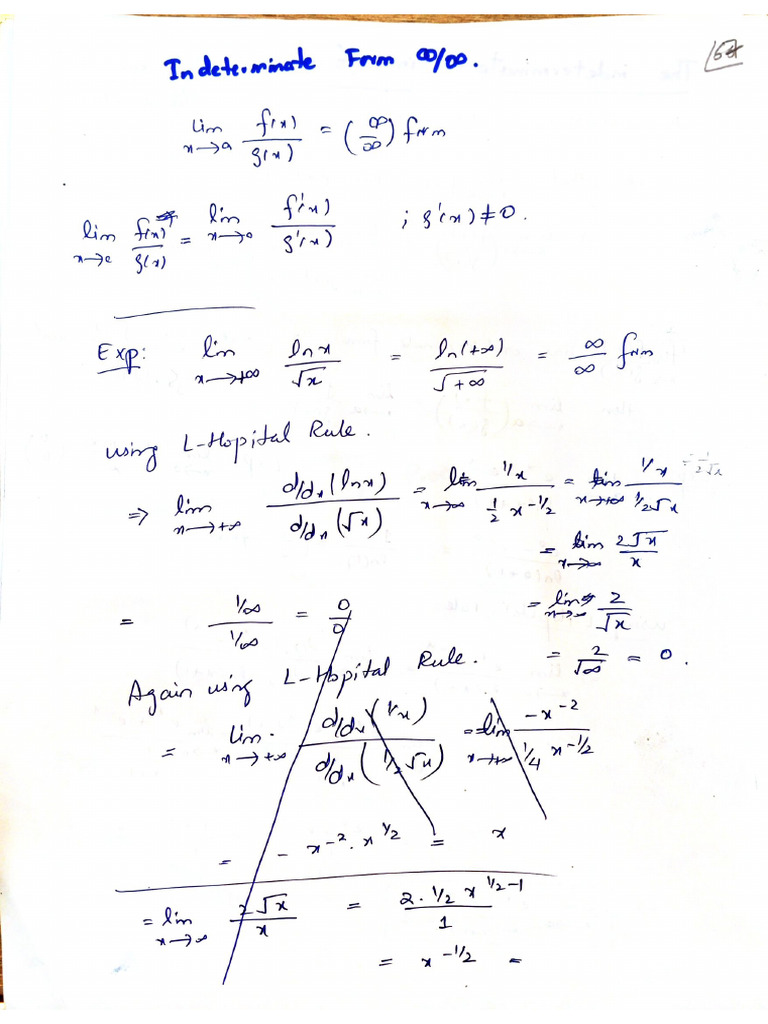 Indeterminate Form ∞/∞.
lim x→a f(x)/g(x) = (∞/∞) form
lim x→c f(x)/g(x) = lim x→0 f'(x)/g'(x) ; g'(x) ≠ 0.
Exp: lim x→+∞ ln x/√x = ln(+∞)/√+∞ = ∞/∞ form
using L-Hopital Rule.
⇒ lim x→+∞ d/dx(ln x)/d/dx(√x) = lim x→∞ 1/x / 1/2 x^-1/2 = lim x→+∞ 1/x / 1/2√x
= lim x→∞ 2√x/x
= 1/∞ / 1/∞ = 0/0
= lim x→∞ 2/√x
= 2/√∞ = 0.
Again using L-Hopital Rule.
= lim x→+∞ d/dx(1/x)/d/dx(1/2 √x) = lim x→+∞ -x^-2 / 1/4 x^-1/2
= - x^-2 . x^1/2 = x
= lim x→∞ 2√x/x = 2·1/2 x^1/2-1 / 1
= x^-1/2 =